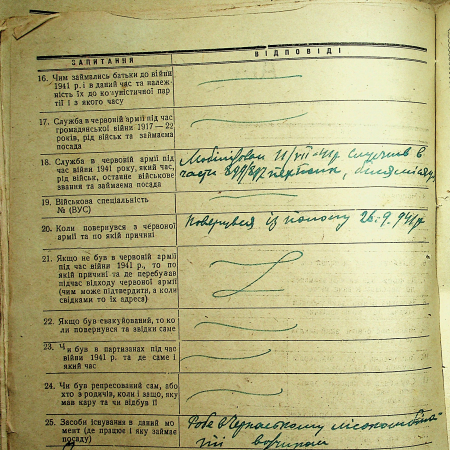 ЗАПИТАННЯ ВІДПОВІДІ
16. Чим займались батьки до війни
1941 р. і в даний час та належ-
ність їх до комуністичної пар
тії і з якого часу
17. Служба в червоній армії під час
громадянської війни 1917—22
років, рід військ та займаєма
посада
18. Служба в червоній армії під
час війни 1941 року, який час,
рід військ, останнє військове
звання та займаєма посада
Мобілізован 11/VII-41р служив в
части
19. Військова спеціальність
№ (ВУС)
20. Коли повернувся з червоної
армії та по якій причині
Повернувся із полону 26.9.41р
21. Якщо не був в червоній армії
під час війни 1941 р., то по
якій причині та де перебував
під час відходу червоної армії
(чим може підтвердити, а коли
свідками то їх адреса)
22. Якщо був евакуйований, то ко
ли повернувся та звідки саме
23. Чи був в партизанах під час
війни 1941 р. та де саме і
який час
24. Чи був репресований сам, або
хто з родичів, коли і защо, яку
мав кару та чи відбув її
25. Засоби існування в даний мо
мент (де працює і яку займає
посаду)